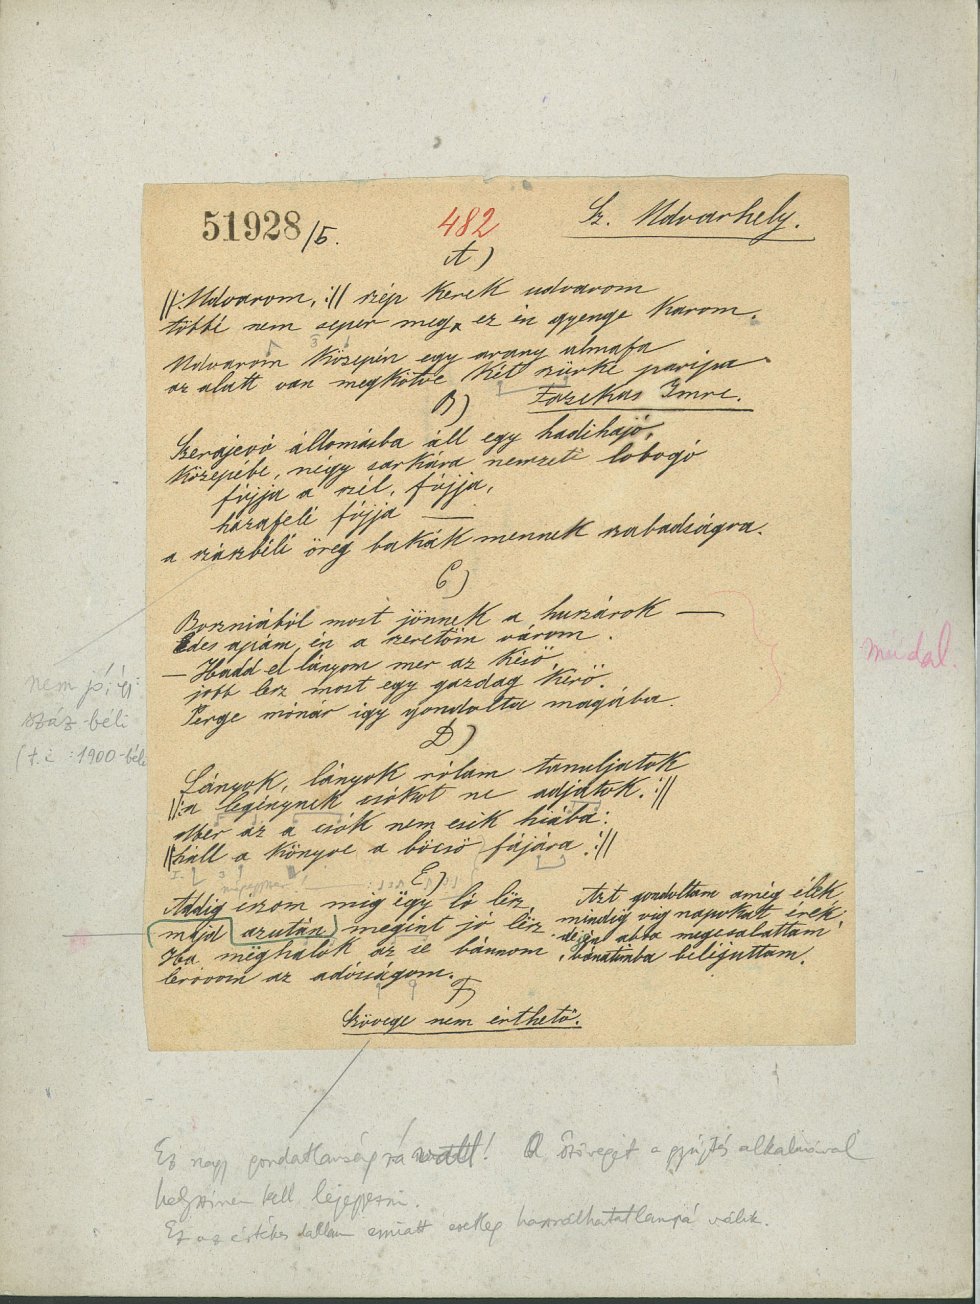 51928/5.
482
Sz. Udvarhely.
A)
||: Udvarom, :|| szép kerek udvarom
többé nem seper meg ez én gyenge karom.
Udvarom közepén egy arany almafa
az alatt van megkötve két szürke paripa
Fazekas Imre.
B)
Szerajevó állomásba áll egy hadihajó,
közepébe, négy sarkára nemzeti lobogó
fújja a szél, fújja,
hazafelé fújja —
a százbéli öreg bakák mennek szabadságra.
C)
Boszniából most jönnek a huszárok —
Édes apám, én a szeretőm várom.
— Hadd el lányom mer az késő,
jobb lesz most egy gazdag kérő.
Perge mónár igy gondolta magába.
műdal.
nem jó, új:
száz-béli
(t.i.: 1900-béli
D)
Lányok, lányok rólam tanuljatok
||: a legénynek csókot ne adjatok. :||
Mer az a csók nem esik hiába:
||: száll a könyve a böcső fájára :||
E)
Addig iszom míg egy ló lësz,
majd azután megint jó lësz.
Ha mëghalok az se bánnom
lerovom az adósságom.
Azt gondoltam amég élek
mindig vig napokat érek
de én abba megcsalattam
bánatimba beléjuttam.
F)
Szövege nem érthető.
Ez nagy gondatlanságra vall! A szöveget a gyűjtés alkalmával
helyszinen kell lejegyezni.
Ez az értékes dallam emiatt esetleg használhatatlanná válik.